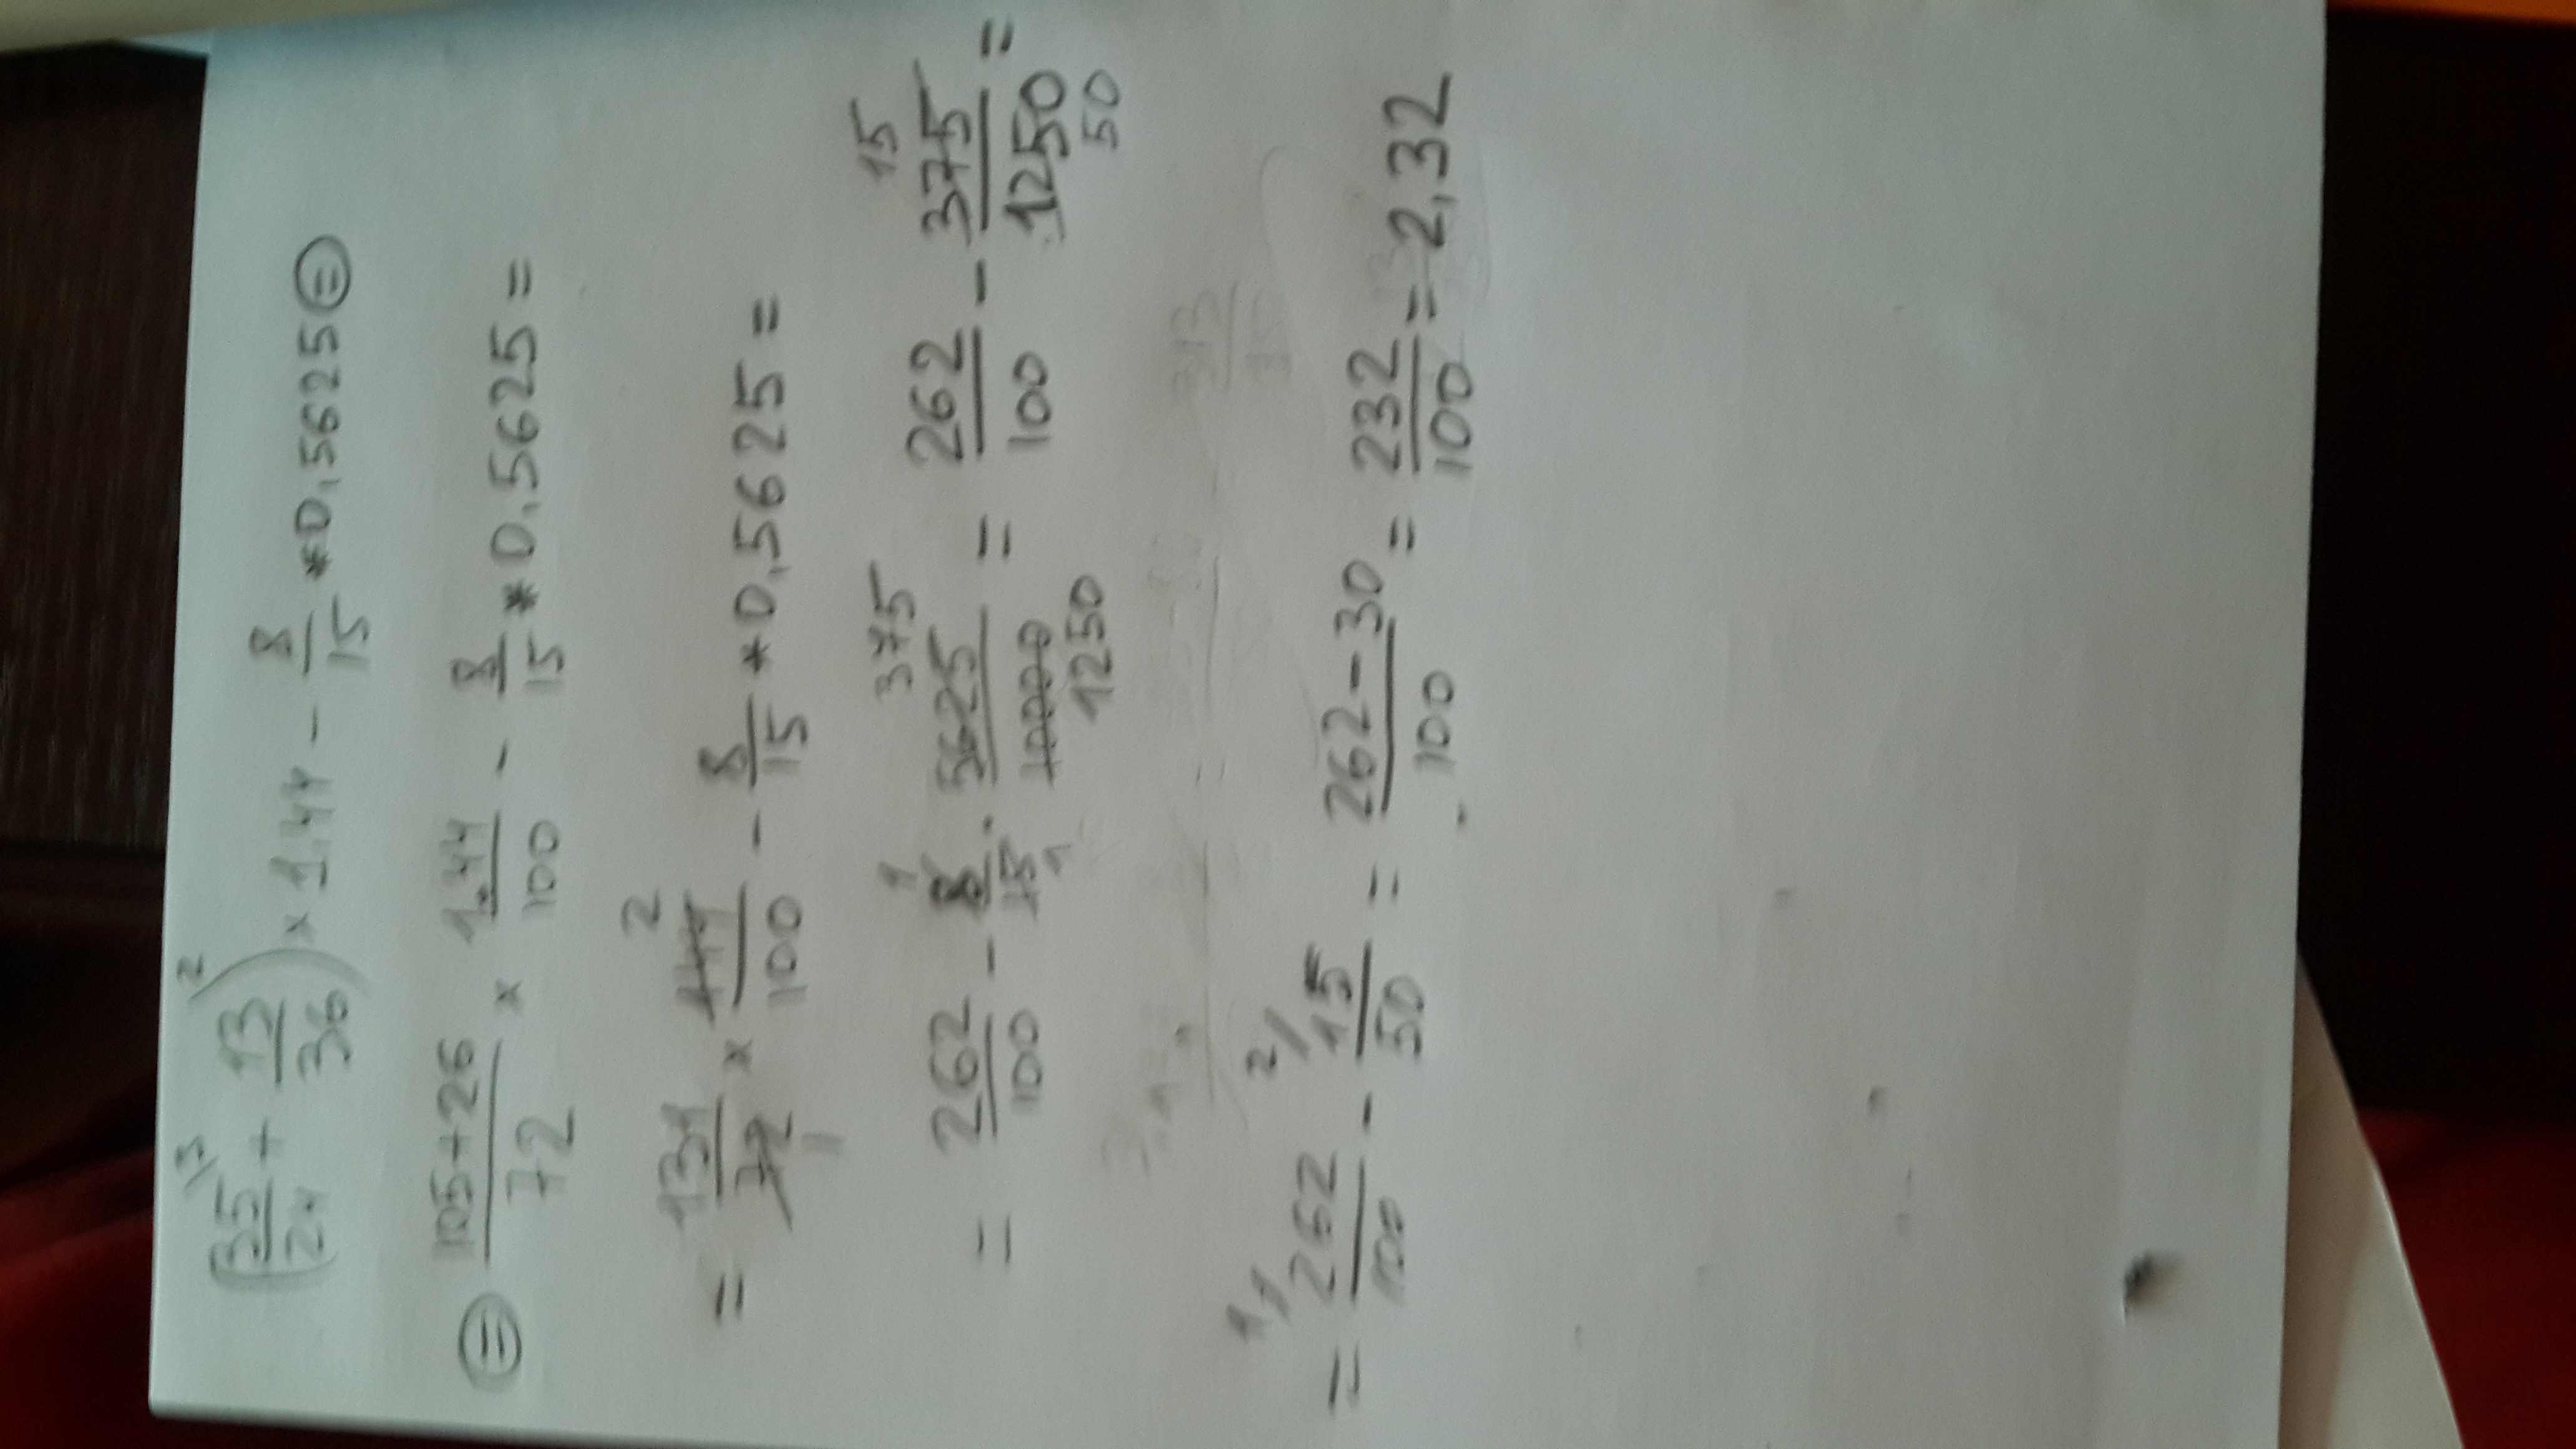 (35/24 + 13/36) × 1,44 - 8/15 * 0,5625 =
= 105+26/72 × 1.44/100 - 8/15 * 0,5625 =
= 131/72 × 144/100 - 8/15 * 0,5625 =
= 262/100 - 8/15 · 5625/10000 = 262/100 - 375/1250 =
= 262/100 - 15/50 = 262-30/100 = 232/100 = 2,32